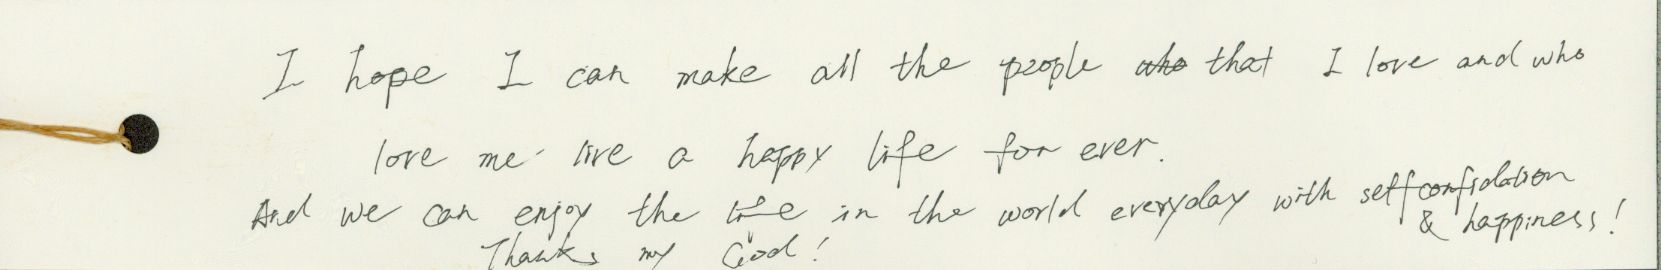 I hope I can make all the people who that I love and who
love me live a happy life for ever.
And we can enjoy the life in the world everyday with selfconfidation
& happiness!
Thanks my God!